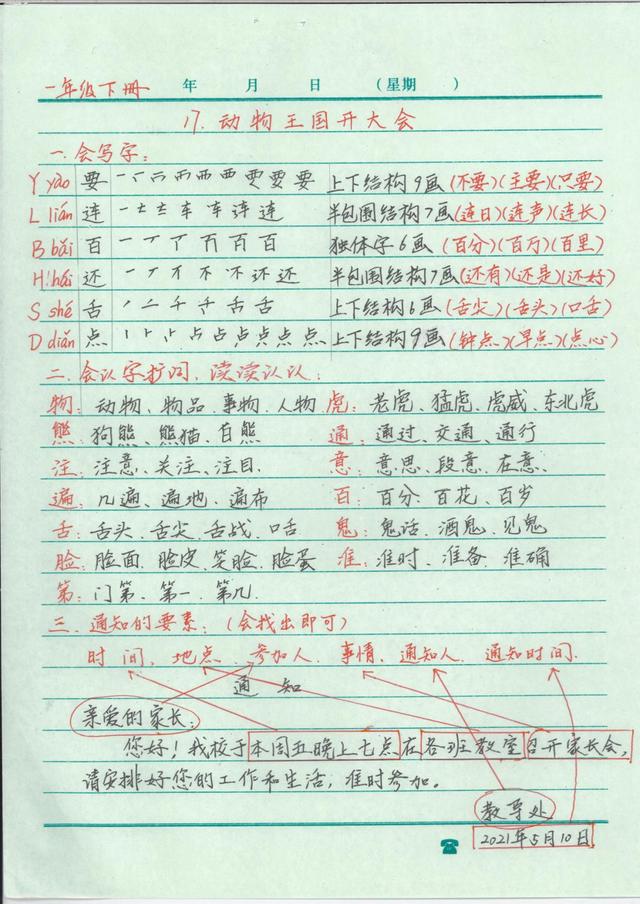 一年级下册 年 月 日 (星期 )
17. 动物王国开大会
一.会写字:
Y yào 要 一 一 一 襾 西 西 要 要 要 上下结构 9画(不要)(主要)(只要)
L lián 连 一 车 连 连 半包围结构7画(连日)(连声)(连长)
B bǎi 百 一 丆 丆 百 百 百 独体字6画 (百分)(百万)(百里)
H hái 还 一 丆 不 不 不 还 还 半包围结构7画(还有)(还是)(还好)
S shé 舌 ノ 二 千 千 舌 舌 上下结构6画(舌尖)(舌头)(口舌)
D diǎn 点 丨 卜 占 占 占 点 点 点 点 上下结构9画(钟点)(早点)(点心)
二.会认字扩词,读读认认:
物:动物、物品、事物、人物 虎:老虎、猛虎、虎威、东北虎
熊:狗熊、熊猫、白熊 通:通过、交通、通行
注:注意、关注、注目. 意:意思、段意、在意、
遍:几遍、遍地、遍布 百:百分、百花、百岁
舌:舌头、舌尖、舌战、口舌 鬼:鬼话、酒鬼、见鬼
脸:脸面、脸皮、笑脸、脸蛋 准:准时、准备、准确
第:门第、第一、第几.
三.通知的要素:(会找出即可)
时间、地点、参加人、事情、通知人、通知时间.
通 知
亲爱的家长:
您好!我校于本周五晚上七点在各班教室召开家长会,
请安排好您的工作和生活,准时参加。
教导处
2021年5月10日